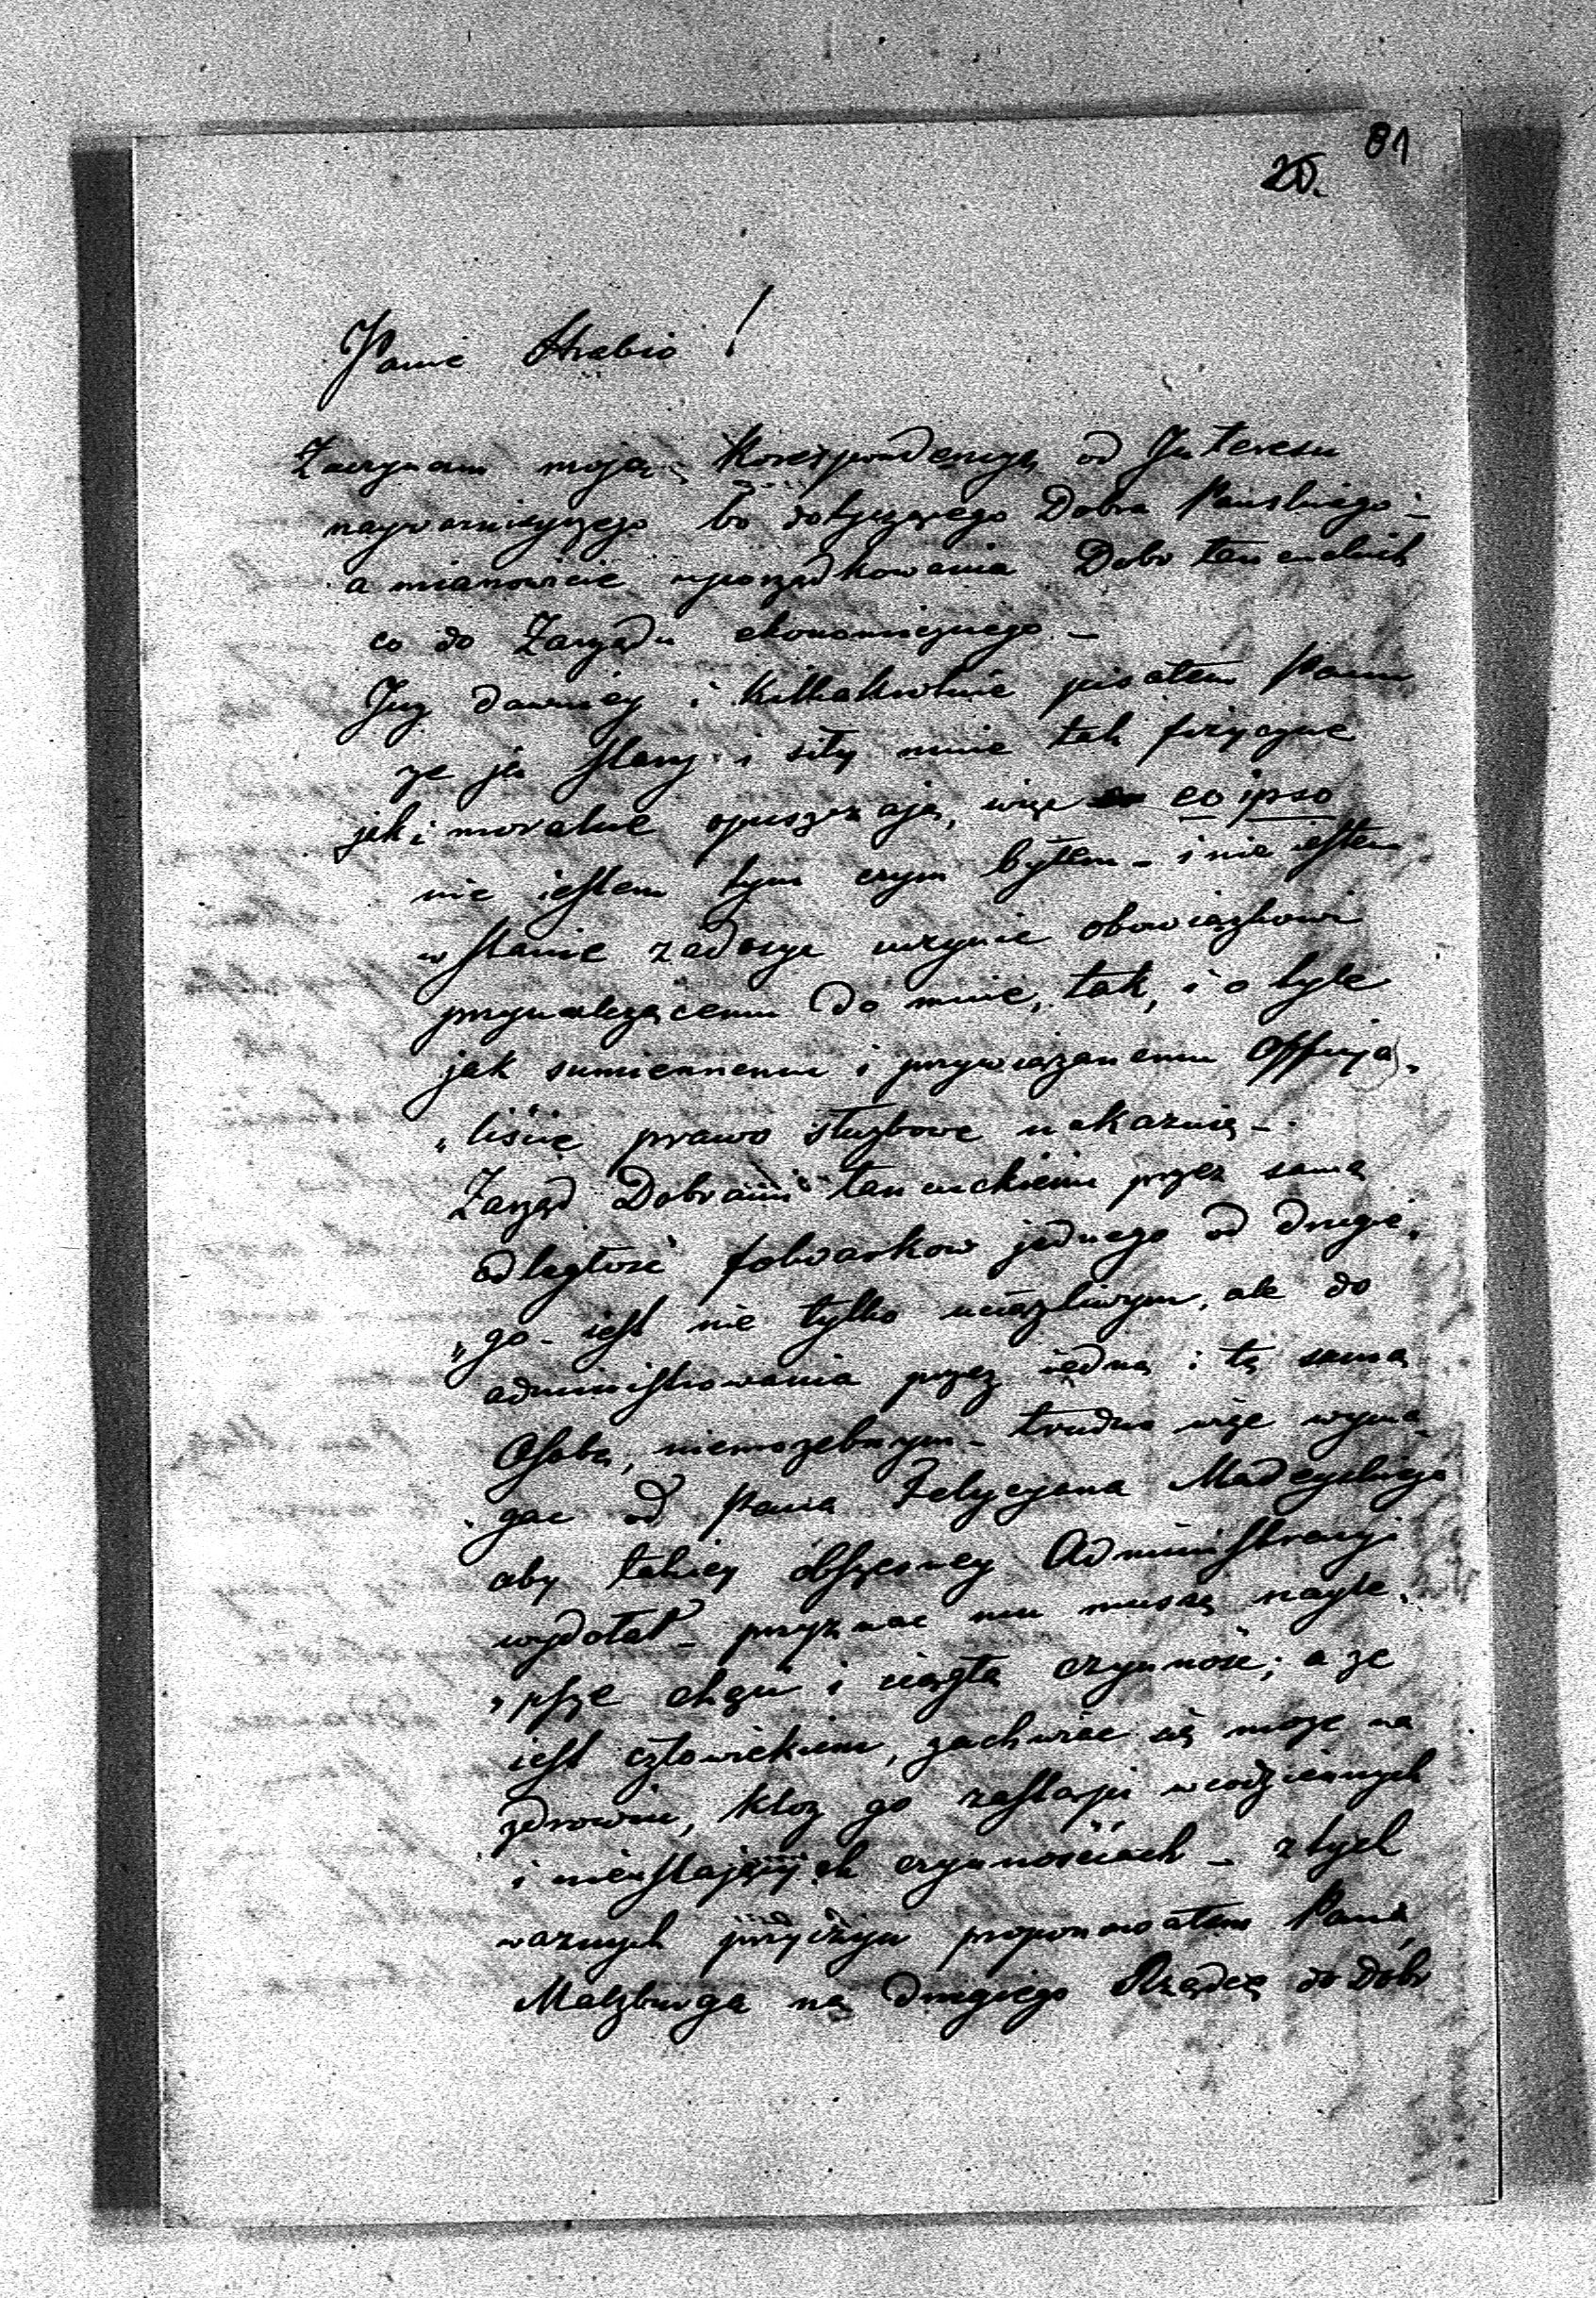 81
20.
Panie Hrabio!
Zaczynam moją Korespondencyą od Interesu
naywaznieyszego bo dotyczącego Dobra Pańskiego –
a mianowicie uporządkowania Dobr Łancuckich
co do Zarządu ekonomicznego –
Juz dawniey i kilkakrotnie pisałem Panu
ze ja stary i siły mnie tak fizyczne
jak i moralne opuszczają, więc eo ipso
nie iestem tym czym byłem – i nie iestem
w stanie zadosyc uczynic obowiązkowi
przynalezącemu do mnie, tak, i o tyle
jak sumiennemu i przywiązanemu Officja„
„liście prawo służbowe nakazuię –
Zarząd Dobrami Łancuckiemi przez samą
odległość folwarkow jednego od drugie„
„go – iest nie tylko uciązliwym, ale do
administrowania przez iedną i tą samą
Osobę, niemozebnym – trudno więc wyma„
„gac od Pana Felicyjana Madeyskiego
aby takiey obszerney Administracyi
wydołał – przyznac mu muszą nayle„
„psze chęci i ciągłą czynność; a ze
iest człowiekiem, zachwiac się moze na
zdrowiu, ktoz go zastąpi w codziennych
i nieustających czynnościach – z tych
waznych przyczyn proponowałem Pana
Malzburga na drugiego Rządcę do Dóbr